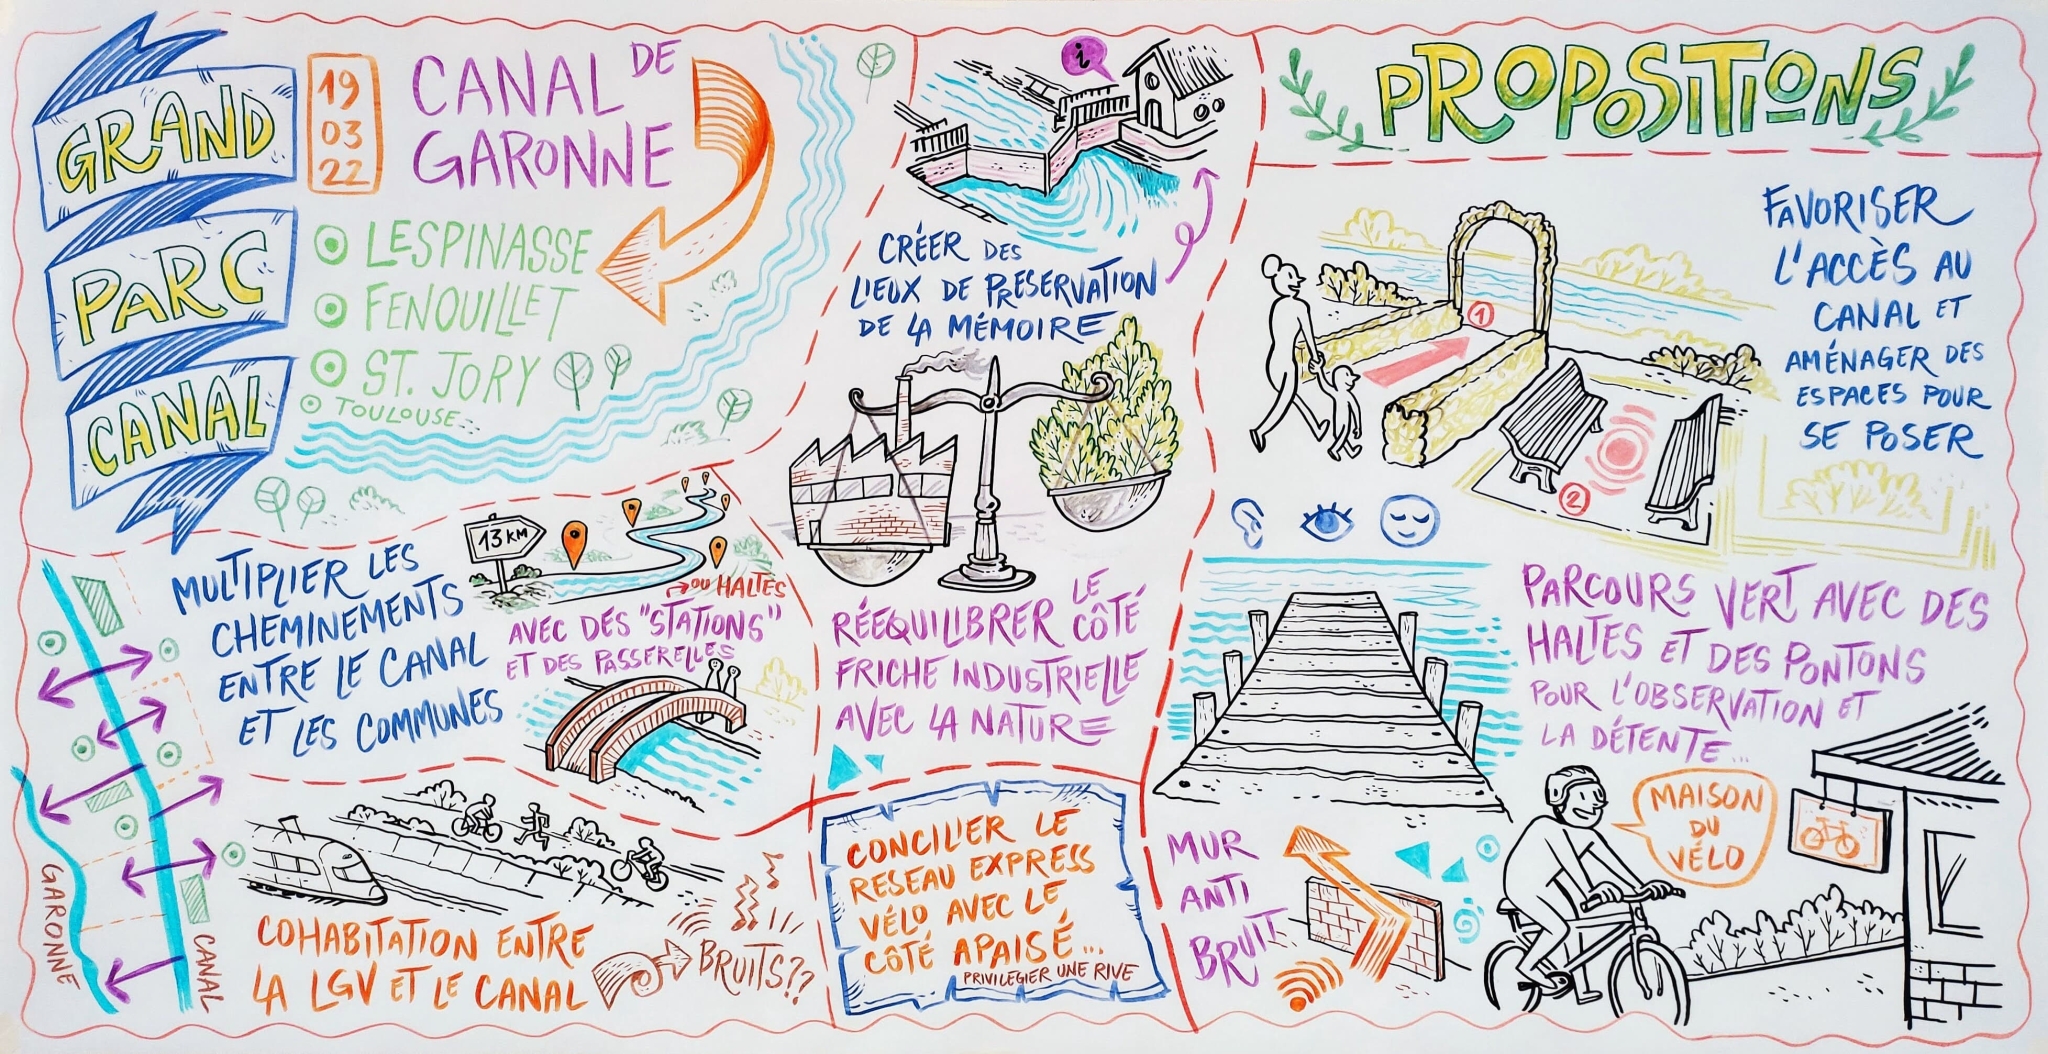 GRAND
PARC
CANAL
19
03
22
CANAL DE
GARONNE
LESPINASSE
FENOUILLET
ST. JORY
TOULOUSE
i
CRÉER DES
LIEUX DE PRESERVATION
DE LA MÉMOIRE
PROPOSITIONS
FAVORISER
L'ACCÈS AU
CANAL ET
AMÉNAGER DES
ESPACES POUR
SE POSER
1
2
MULTIPLIER LES
CHEMINEMENTS
ENTRE LE CANAL
ET LES COMMUNES
13 KM
OU HALTES
AVEC DES "STATIONS"
ET DES PASSERELLES
RÉEQUILIBRER LE CÔTÉ
FRICHE INDUSTRIELLE
AVEC LA NATURE
PARCOURS VERT AVEC DES
HALTES ET DES PONTONS
POUR L'OBSERVATION ET
LA DÉTENTE...
GARONNE
CANAL
COHABITATION ENTRE
LA LGV ET LE CANAL
BRUITS??
CONCILIER LE
RESEAU EXPRESS
VÉLO AVEC LE
CÔTÉ APAISÉ...
PRIVILEGIER UNE RIVE
MUR
ANTI
BRUIT
MAISON
DU
VÉLO